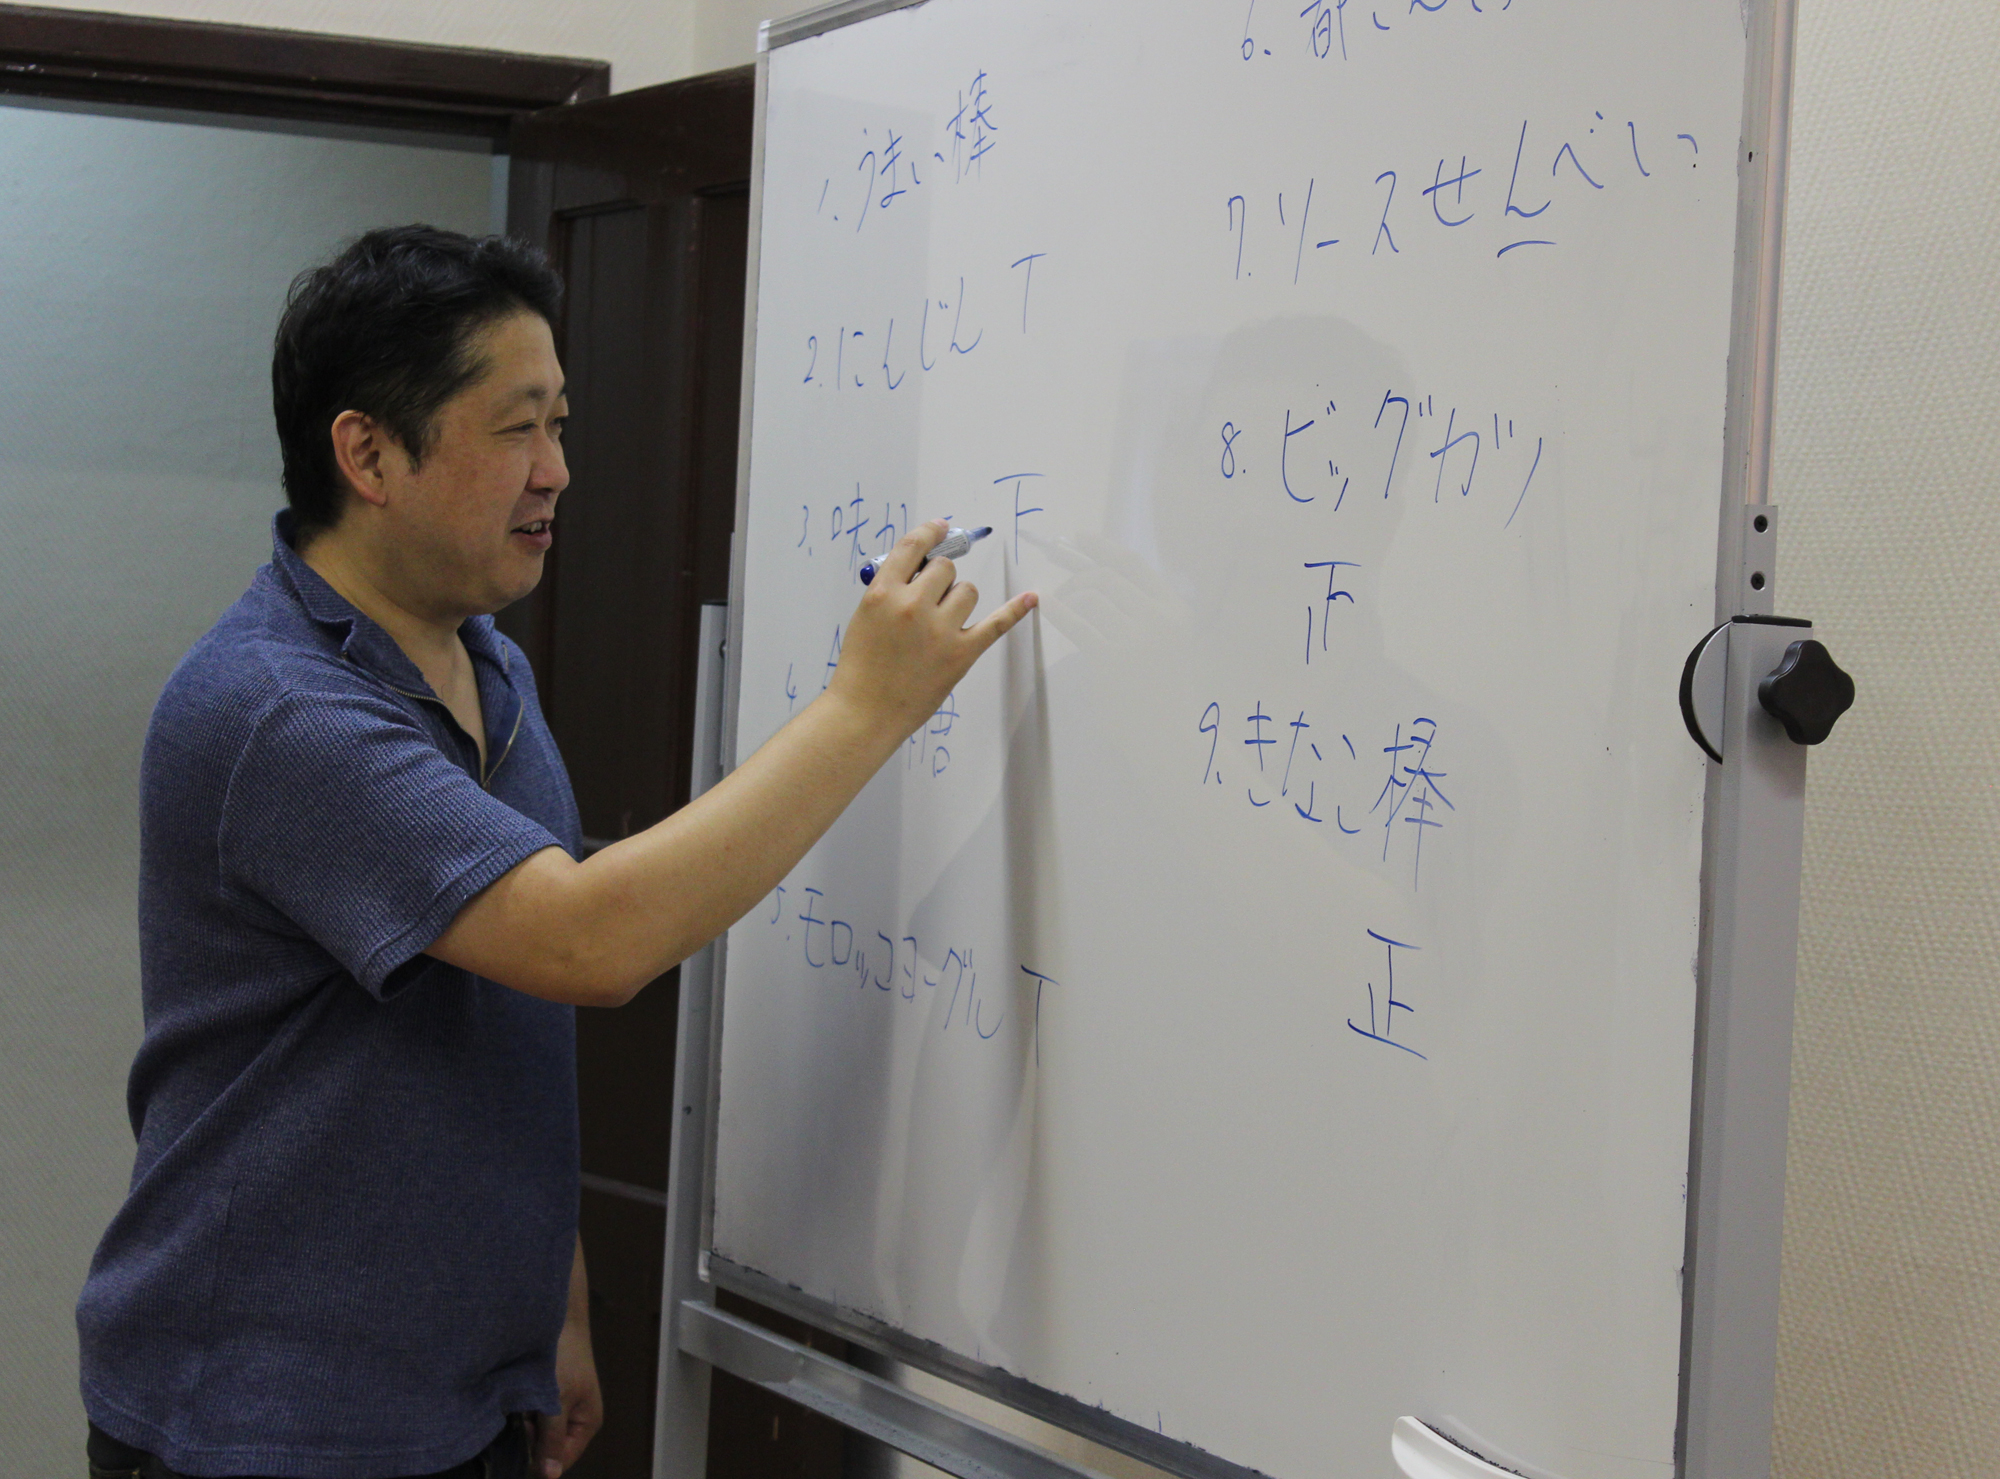 1. うまい棒
2. にんじん T
3. 味か 下
4.
糖
5. モロッコヨーグル T
6. 都こんぶ
7. ソースせんべい
8. ビッグカツ
正
9. きなこ棒
正